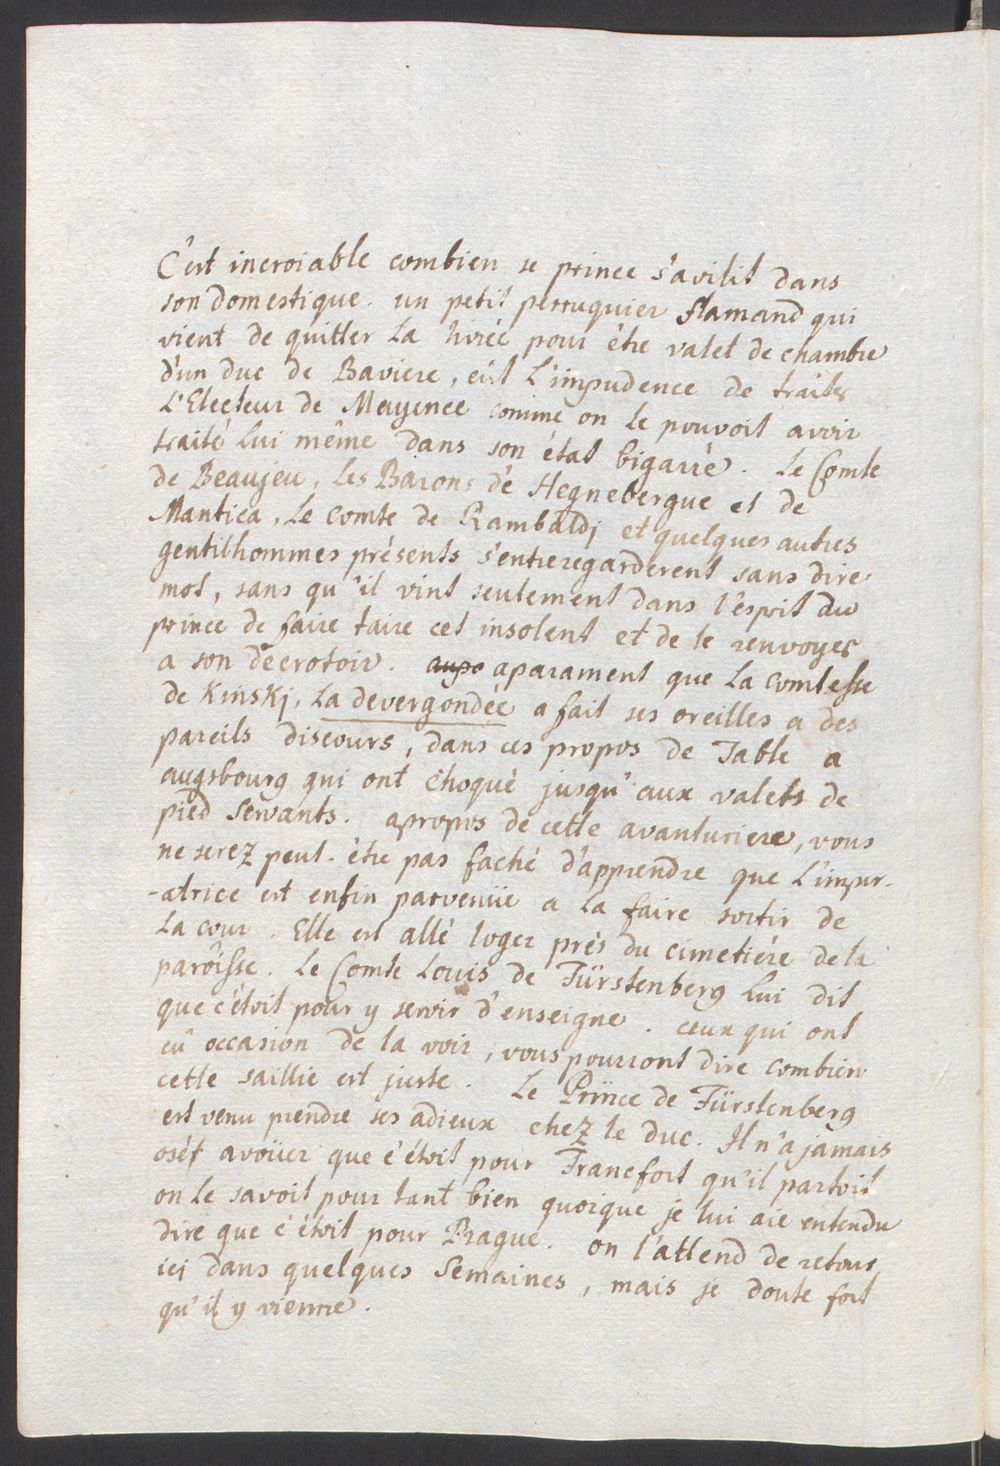 C'est incroiable combien se prince s'avilit dans
son domestique. un petit perruquier flamand qui
vient de quitter La livrée pour étre valet de chambre
d'un Duc de Baviere, eut L'impudence de traiter
L'Electeur de Mayence comme on le pouvoit avoir
traité Lui même dans son état bigarré. Le Comte
de Beaujeu, Les Barons de Hegnebergue et de
Mantica, Le comte de Rambaldj et quelques autres
gentilhommes présents s'entreregarderent sans dire
mot, sans qu'il vint seulement dans l'esprit du
prince de faire taire cet insolent et de le renvoyer
a son decrotoir. aupa aparament que La comtesse
de Kinskj, La devergondée a fait ses oreilles a des
pareils discours, dans ces propos de Table a
augsbourg qui ont choqué jusqu'aux valets de
pied servants. apropos de cette avanturiere, vous
ne serez peut-étre pas faché d'apprendre que L'impur-
-atrice est enfin parvenüe a La faire sortir de
La cour. Elle est allé loger prés du cimetiére de la
parôisse. Le Comte Louis de Fürstenberg Lui dit
que c'étoit pour y servir d'enseigne. ceux qui ont
eû occasion de la voir, vous pourront dire combien
cette saillie est juste. Le Prince de Fürstenberg
est venu prendre ses adieux chez le Duc. Il n'a jamais
osét avoüer que c'étoit pour Francfort qu'il partoit
on Le savoit pour tant bien quoique je lui aie entendu
dire que c'étoit pour Prague. on l'attend de retour
icj dans quelques Semaines, mais je doute fort
qu'il y vienne.